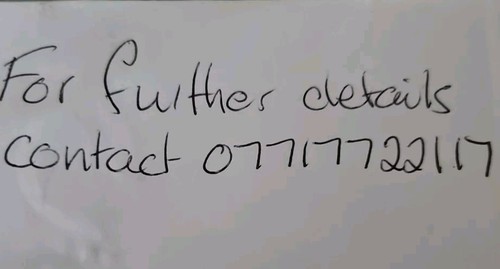 For further details
contact 07717722117